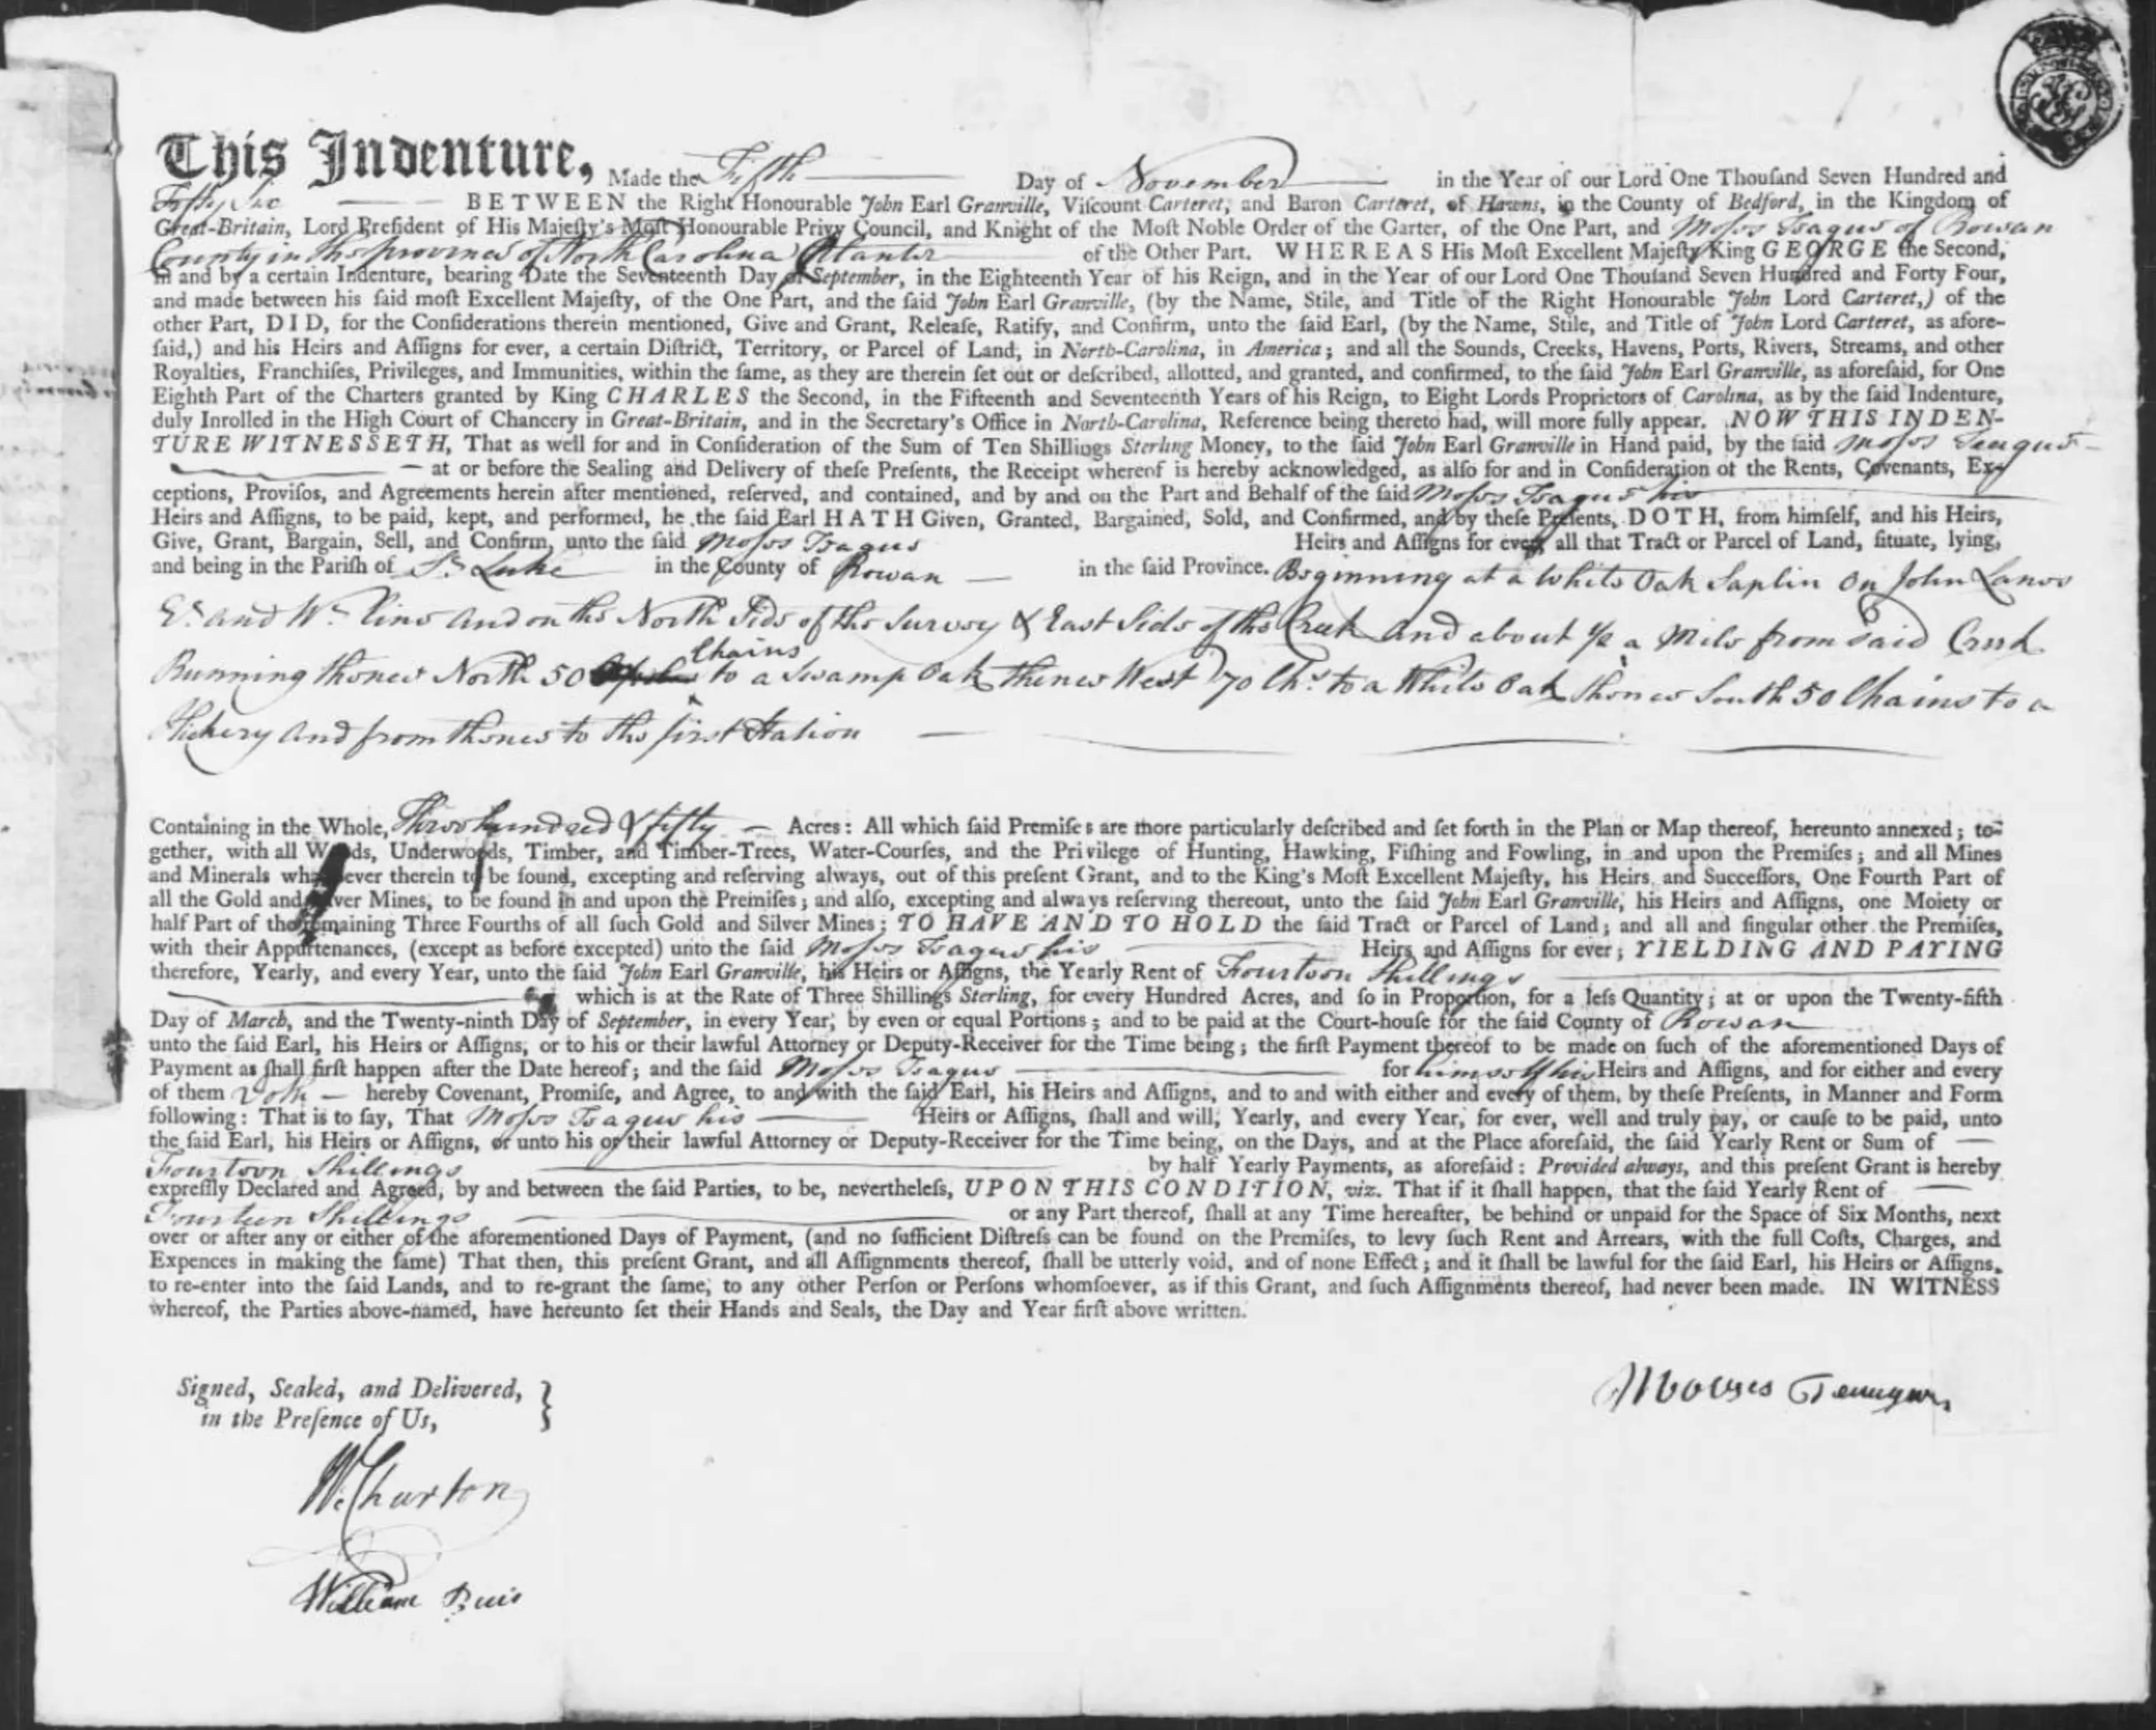 This Indenture, Made the Fifth Day of November in the Year of our Lord One Thouſand Seven Hundred and
Fifty Six BETWEEN the Right Honourable John Earl Granville, Viſcount Carteret, and Baron Carteret, of Hawns, in the County of Bedford, in the Kingdom of
Great-Britain, Lord Preſident of His Majeſty's Moſt Honourable Privy Council, and Knight of the Moſt Noble Order of the Garter, of the One Part, and Moses Teague of Rowan
County in the province of North Carolina Planter of the Other Part. WHEREAS His Moſt Excellent Majeſty King GEORGE the Second,
in and by a certain Indenture, bearing Date the Seventeenth Day of September, in the Eighteenth Year of his Reign, and in the Year of our Lord One Thouſand Seven Hundred and Forty Four,
and made between his ſaid moſt Excellent Majeſty, of the One Part, and the ſaid John Earl Granville, (by the Name, Stile, and Title of the Right Honourable John Lord Carteret,) of the
other Part, DID, for the Conſiderations therein mentioned, Give and Grant, Releaſe, Ratify, and Confirm, unto the ſaid Earl, (by the Name, Stile, and Title of John Lord Carteret, as afore-
ſaid,) and his Heirs and Aſſigns for ever, a certain Diſtrict, Territory, or Parcel of Land, in North-Carolina, in America; and all the Sounds, Creeks, Havens, Ports, Rivers, Streams, and other
Royalties, Franchiſes, Privileges, and Immunities, within the ſame, as they are therein ſet out or deſcribed, allotted, and granted, and confirmed, to the ſaid John Earl Granville, as aforeſaid, for One
Eighth Part of the Charters granted by King CHARLES the Second, in the Fifteenth and Seventeenth Years of his Reign, to Eight Lords Proprietors of Carolina, as by the ſaid Indenture,
duly Inrolled in the High Court of Chancery in Great-Britain, and in the Secretary's Office in North-Carolina, Reference being thereto had, will more fully appear. NOW THIS INDEN-
TURE WITNESSETH, That as well for and in Conſideration of the Sum of Ten Shillings Sterling Money, to the ſaid John Earl Granville in Hand paid, by the ſaid Moses Teague
at or before the Sealing and Delivery of theſe Preſents, the Receipt whereof is hereby acknowledged, as alſo for and in Conſideration of the Rents, Covenants, Ex-
ceptions, Proviſos, and Agreements herein after mentioned, reſerved, and contained, and by and on the Part and Behalf of the ſaid Moses Teague his
Heirs and Aſſigns, to be paid, kept, and performed, he the ſaid Earl HATH Given, Granted, Bargained, Sold, and Confirmed, and by theſe Preſents, DOTH, from himſelf, and his Heirs,
Give, Grant, Bargain, Sell, and Confirm, unto the ſaid Moses Teague Heirs and Aſſigns for ever, all that Tract or Parcel of Land, ſituate, lying,
and being in the Pariſh of St Luke in the County of Rowan in the ſaid Province. Beginning at a White Oak Saplin on John Lanes
Et. and Wt. line and on the North Side of the Survey & East Side of the Creek And about ½ a Mile from said Creek
Running thence North 50 Chains to a Swamp Oak thence West 70 Chs. to a White Oak thence South 50 Chains to a
Hickery and from thence to the first Station
Containing in the Whole, Three hundred & fifty Acres: All which ſaid Premiſes are more particularly deſcribed and ſet forth in the Plan or Map thereof, hereunto annexed; to-
gether, with all Woods, Underwoods, Timber, and Timber-Trees, Water-Courſes, and the Privilege of Hunting, Hawking, Fiſhing and Fowling, in and upon the Premiſes; and all Mines
and Minerals whatſoever therein to be found, excepting and reſerving always, out of this preſent Grant, and to the King's Moſt Excellent Majeſty, his Heirs and Succeſſors, One Fourth Part of
all the Gold and Silver Mines, to be found in and upon the Premiſes; and alſo, excepting and always reſerving thereout, unto the ſaid John Earl Granville, his Heirs and Aſſigns, one Moiety or
half Part of the remaining Three Fourths of all ſuch Gold and Silver Mines; TO HAVE AND TO HOLD the ſaid Tract or Parcel of Land; and all and ſingular other the Premiſes,
with their Appurtenances, (except as before excepted) unto the ſaid Moses Teague his Heirs and Aſſigns for ever; YIELDING AND PAYING
therefore, Yearly, and every Year, unto the ſaid John Earl Granville, his Heirs or Aſſigns, the Yearly Rent of Fourteen Shillings
which is at the Rate of Three Shillings Sterling, for every Hundred Acres, and ſo in Proportion, for a leſs Quantity; at or upon the Twenty-fifth
Day of March, and the Twenty-ninth Day of September, in every Year, by even or equal Portions; and to be paid at the Court-houſe for the ſaid County of Rowan
unto the ſaid Earl, his Heirs or Aſſigns, or to his or their lawful Attorney or Deputy-Receiver for the Time being; the firſt Payment thereof to be made on ſuch of the aforementioned Days of
Payment as ſhall firſt happen after the Date hereof; and the ſaid Moses Teague for himself his Heirs and Aſſigns, and for either and every
of them Doth hereby Covenant, Promiſe, and Agree, to and with the ſaid Earl, his Heirs and Aſſigns, and to and with either and every of them, by theſe Preſents, in Manner and Form
following: That is to ſay, That Moses Teague his Heirs or Aſſigns, ſhall and will, Yearly, and every Year, for ever, well and truly pay, or cauſe to be paid, unto
the ſaid Earl, his Heirs or Aſſigns, or unto his or their lawful Attorney or Deputy-Receiver for the Time being, on the Days, and at the Place aforeſaid, the ſaid Yearly Rent or Sum of
Fourteen Shillings by half Yearly Payments, as aforeſaid: Provided always, and this preſent Grant is hereby
expreſſly Declared and Agreed, by and between the ſaid Parties, to be, nevertheleſs, UPON THIS CONDITION, viz. That if it ſhall happen, that the ſaid Yearly Rent of
Fourteen Shillings or any Part thereof, ſhall at any Time hereafter, be behind or unpaid for the Space of Six Months, next
over or after any or either of the aforementioned Days of Payment, (and no ſufficient Diſtreſs can be found on the Premiſes, to levy ſuch Rent and Arrears, with the full Coſts, Charges, and
Expences in making the ſame) That then, this preſent Grant, and all Aſſignments thereof, ſhall be utterly void, and of none Effect; and it ſhall be lawful for the ſaid Earl, his Heirs or Aſſigns,
to re-enter into the ſaid Lands, and to re-grant the ſame, to any other Perſon or Perſons whomſoever, as if this Grant, and ſuch Aſſignments thereof, had never been made. IN WITNESS
whereof, the Parties above-named, have hereunto ſet their Hands and Seals, the Day and Year firſt above written.
Signed, Sealed, and Delivered,
in the Preſence of Us,
Mooses Teauger
W. Churton
William Buis